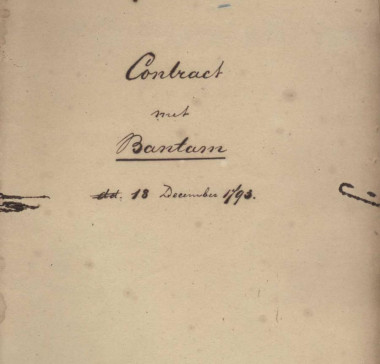 Contract
met
Bantam
dd. 13 December 1793.